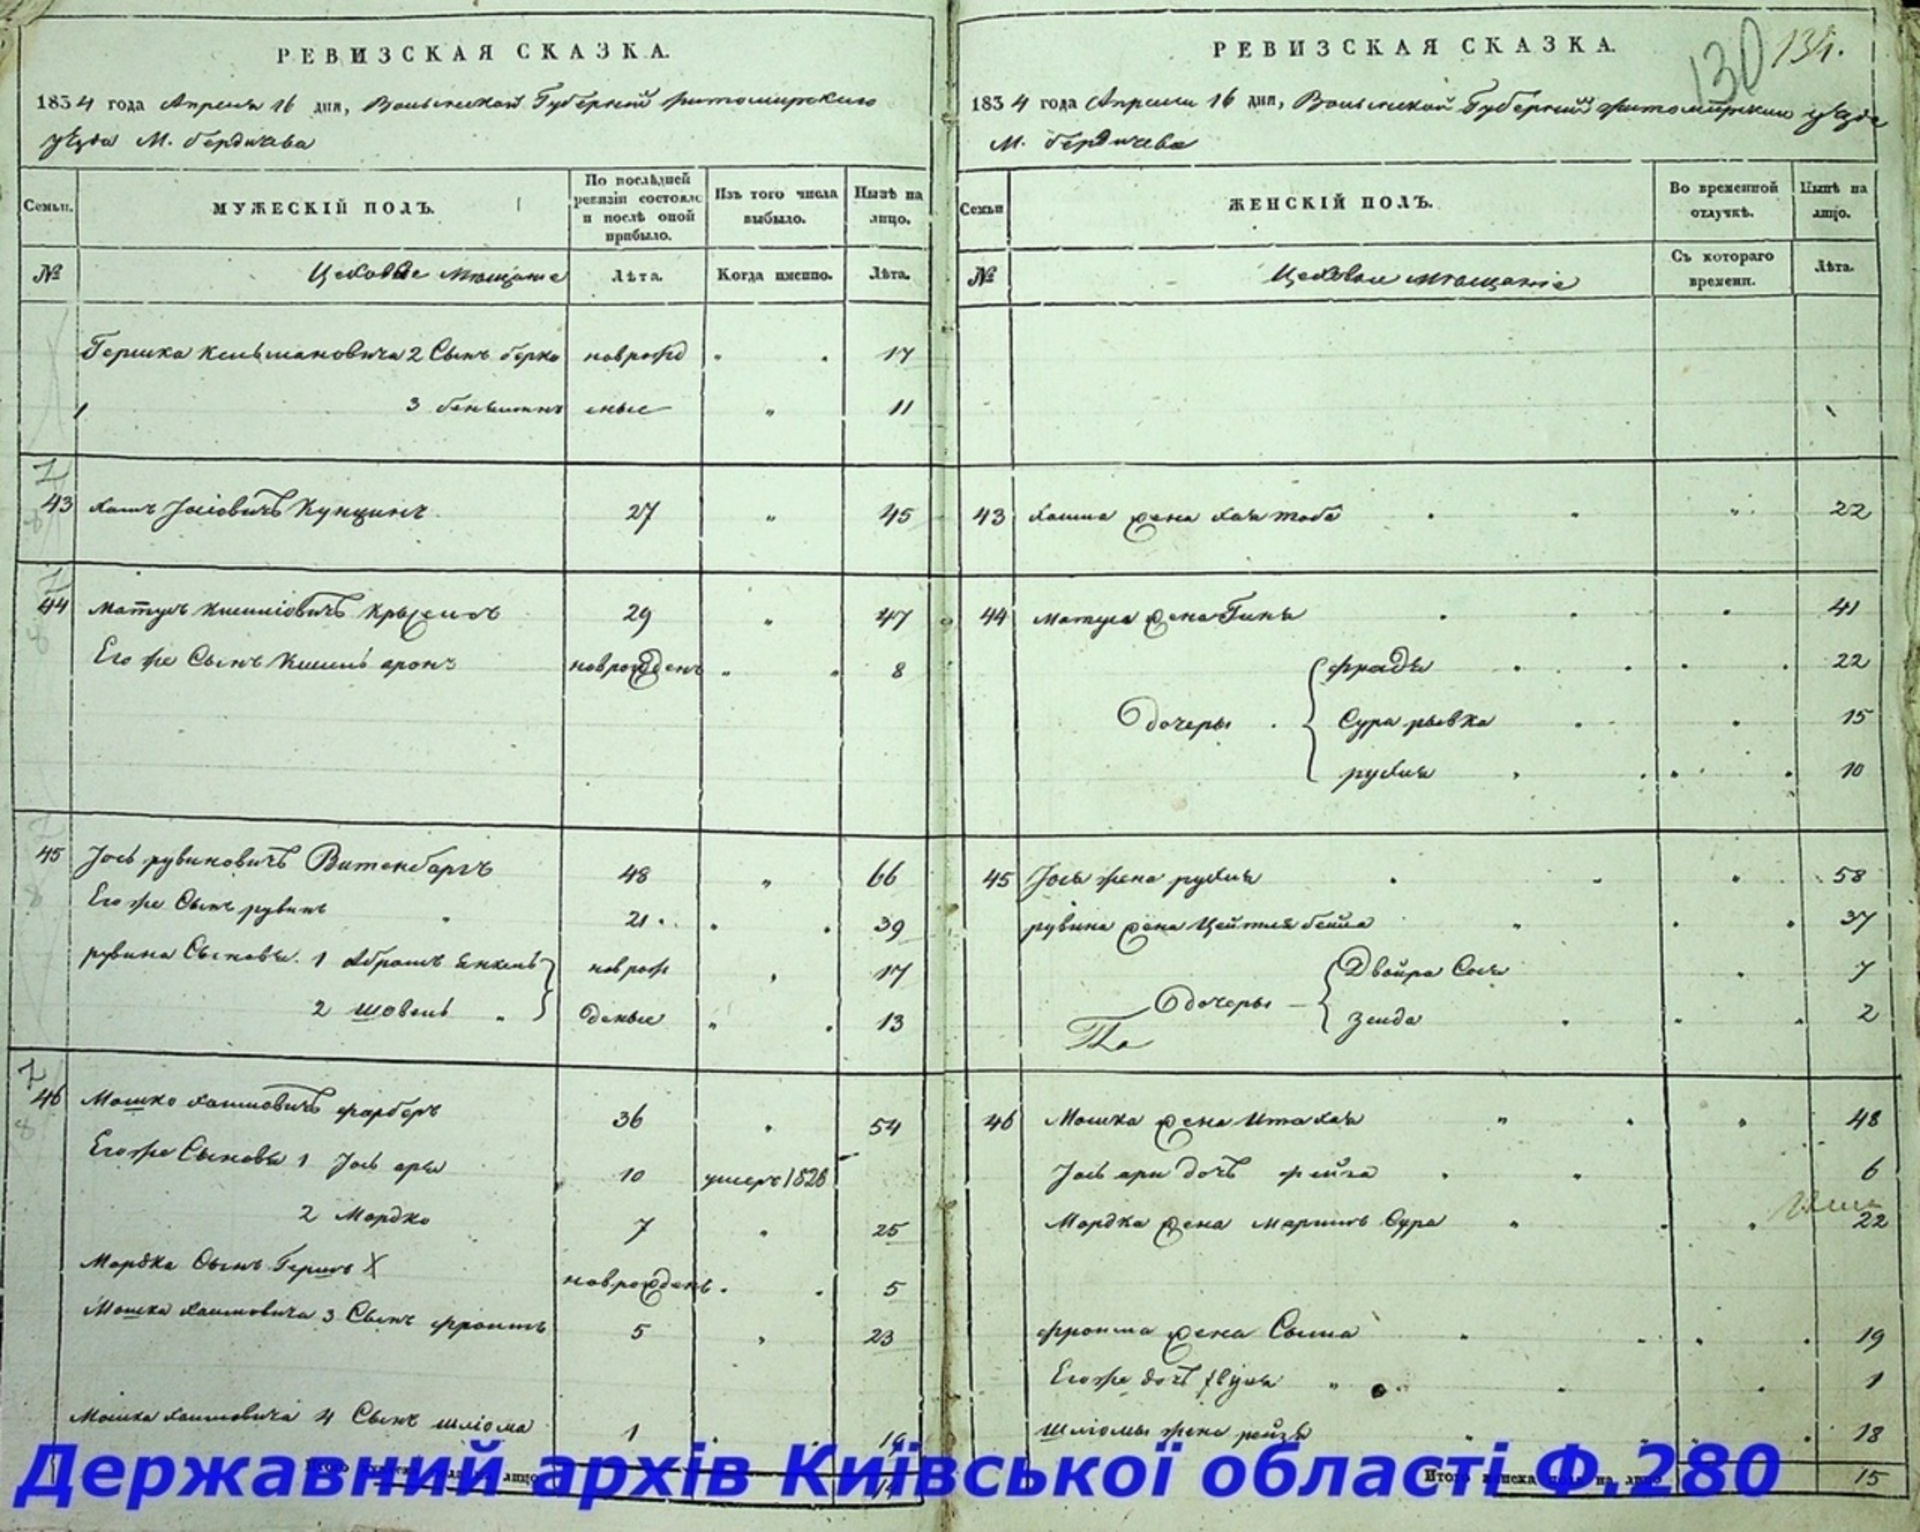 РЕВИЗСКАЯ СКАЗКА.
1834 года Апреля 16 дня, Волынской Губернии Житомирского
уезда М. бердичева
Семьи.
МУЖЕСКІЙ ПОЛЪ.
По послѣдней ревизіи состояло и послѣ оной прибыло.
Изъ того числа выбыло.
Нынѣ на лицо.
№
Цеховые мѣщане
Лѣта.
Когда именно.
Лѣта.
Гершка Кельмановича 2 Сынъ берко новрожд 17
3 беньминъ еные 11
43 хаимъ Іосіовичъ Кунцинъ 27 45
44 мотуль Кисиліовичъ 29 47
Его же Сынъ Кисиль аронъ новрожденъ 8
45 Іось рувиновичъ Витенбаргъ 48 66
Его же Сынъ рувинъ 21 39
рувина Сыновья. 1 Абрамъ Янкель новрож 17
2 шовель деные 13
46 Мошко хаимовичъ фарберъ 36 54
Его же Сыновья 1 Іось ары 10 умеръ 1828
2 Мордко 7 25
Мордка Сынъ Гершъ X новрожденъ 5
Мошка хаимовича 3 Сынъ фроимъ 5 23
Мошка хаимовича 4 Сынъ шліома 1 19
РЕВИЗСКАЯ СКАЗКА.
130 134.
1834 года Апреля 16 дня, Волынской Губернии житомирскаго уезда
М. бердичева
Семьи
ЖЕНСКІЙ ПОЛЪ.
Во временной отлучкѣ.
Нынѣ на лицо.
№
Цеховые мѣщаніе
Съ котораго времени.
Лѣта.
43 хаима жена хая тоба 22
44 мотуля жена Гиня 41
фрадя 22
дочеры Сура рывка 15
рухля 10
45 Іося жена рухля 58
рувина жена Цейтля бейла 37
Двойра Сося 7
дочеры
зелда 2
46 Мошка жена Ита хая 48
Іось ари дочъ фейга 6
Мордка жена Маримъ Сура 22
фроима жена Сыма 19
Его же дочъ 1
шліомы жена рейзя 18
Итого женска пола на лицо 15
Державний архів Київської області Ф.280